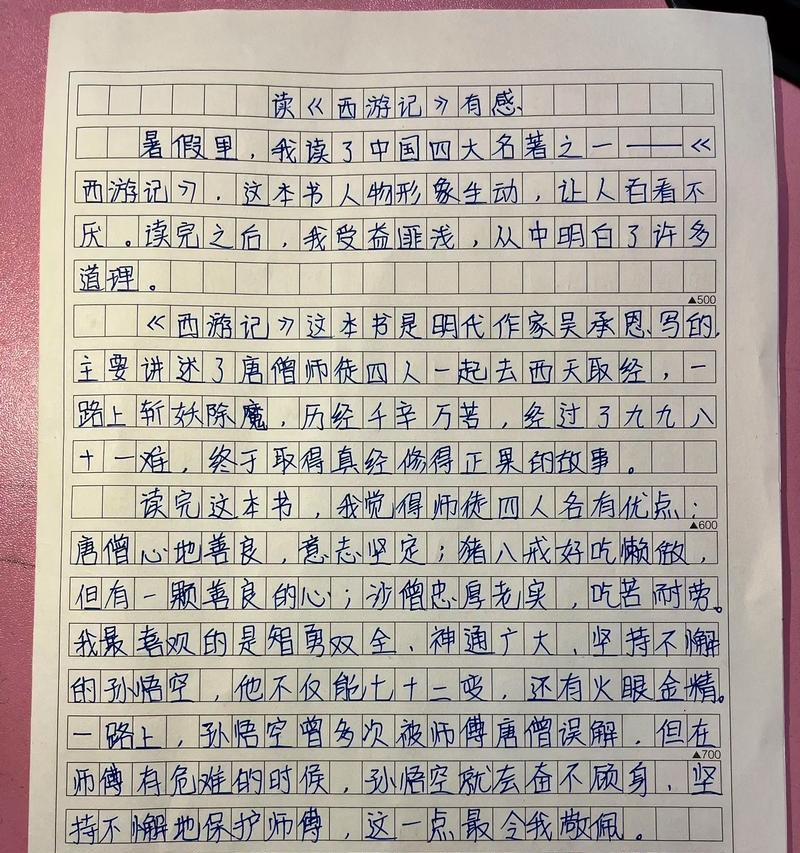 读《西游记》有感
暑假里，我读了中国四大名著之一——《
西游记》，这本书人物形象生动，让人百看不
厌。读完之后，我受益匪浅，从中明白了许多
道理。
▲500
《西游记》这本书是明代作家吴承恩写的，
主要讲述了唐僧师徒四人一起去西天取经，一
路上斩妖除魔，历经千辛万苦，经过了九九八
十一难，终于取得真经修得正果的故事。
读完这本书，我觉得师徒四人各有优点：
▲600
唐僧心地善良，意志坚定；猪八戒好吃懒做，
但有一颗善良的心；沙僧忠厚老实，吃苦耐劳。
我最喜欢的是智勇双全、神通广大、坚持不懈
的孙悟空，他不仅能七十二变，还有火眼金精。
一路上，孙悟空曾多次被师傅唐僧误解，但在
▲700
师傅有危难的时候，孙悟空就会奋不顾身、坚
持不懈地保护师傅，这一点最令我敬佩。